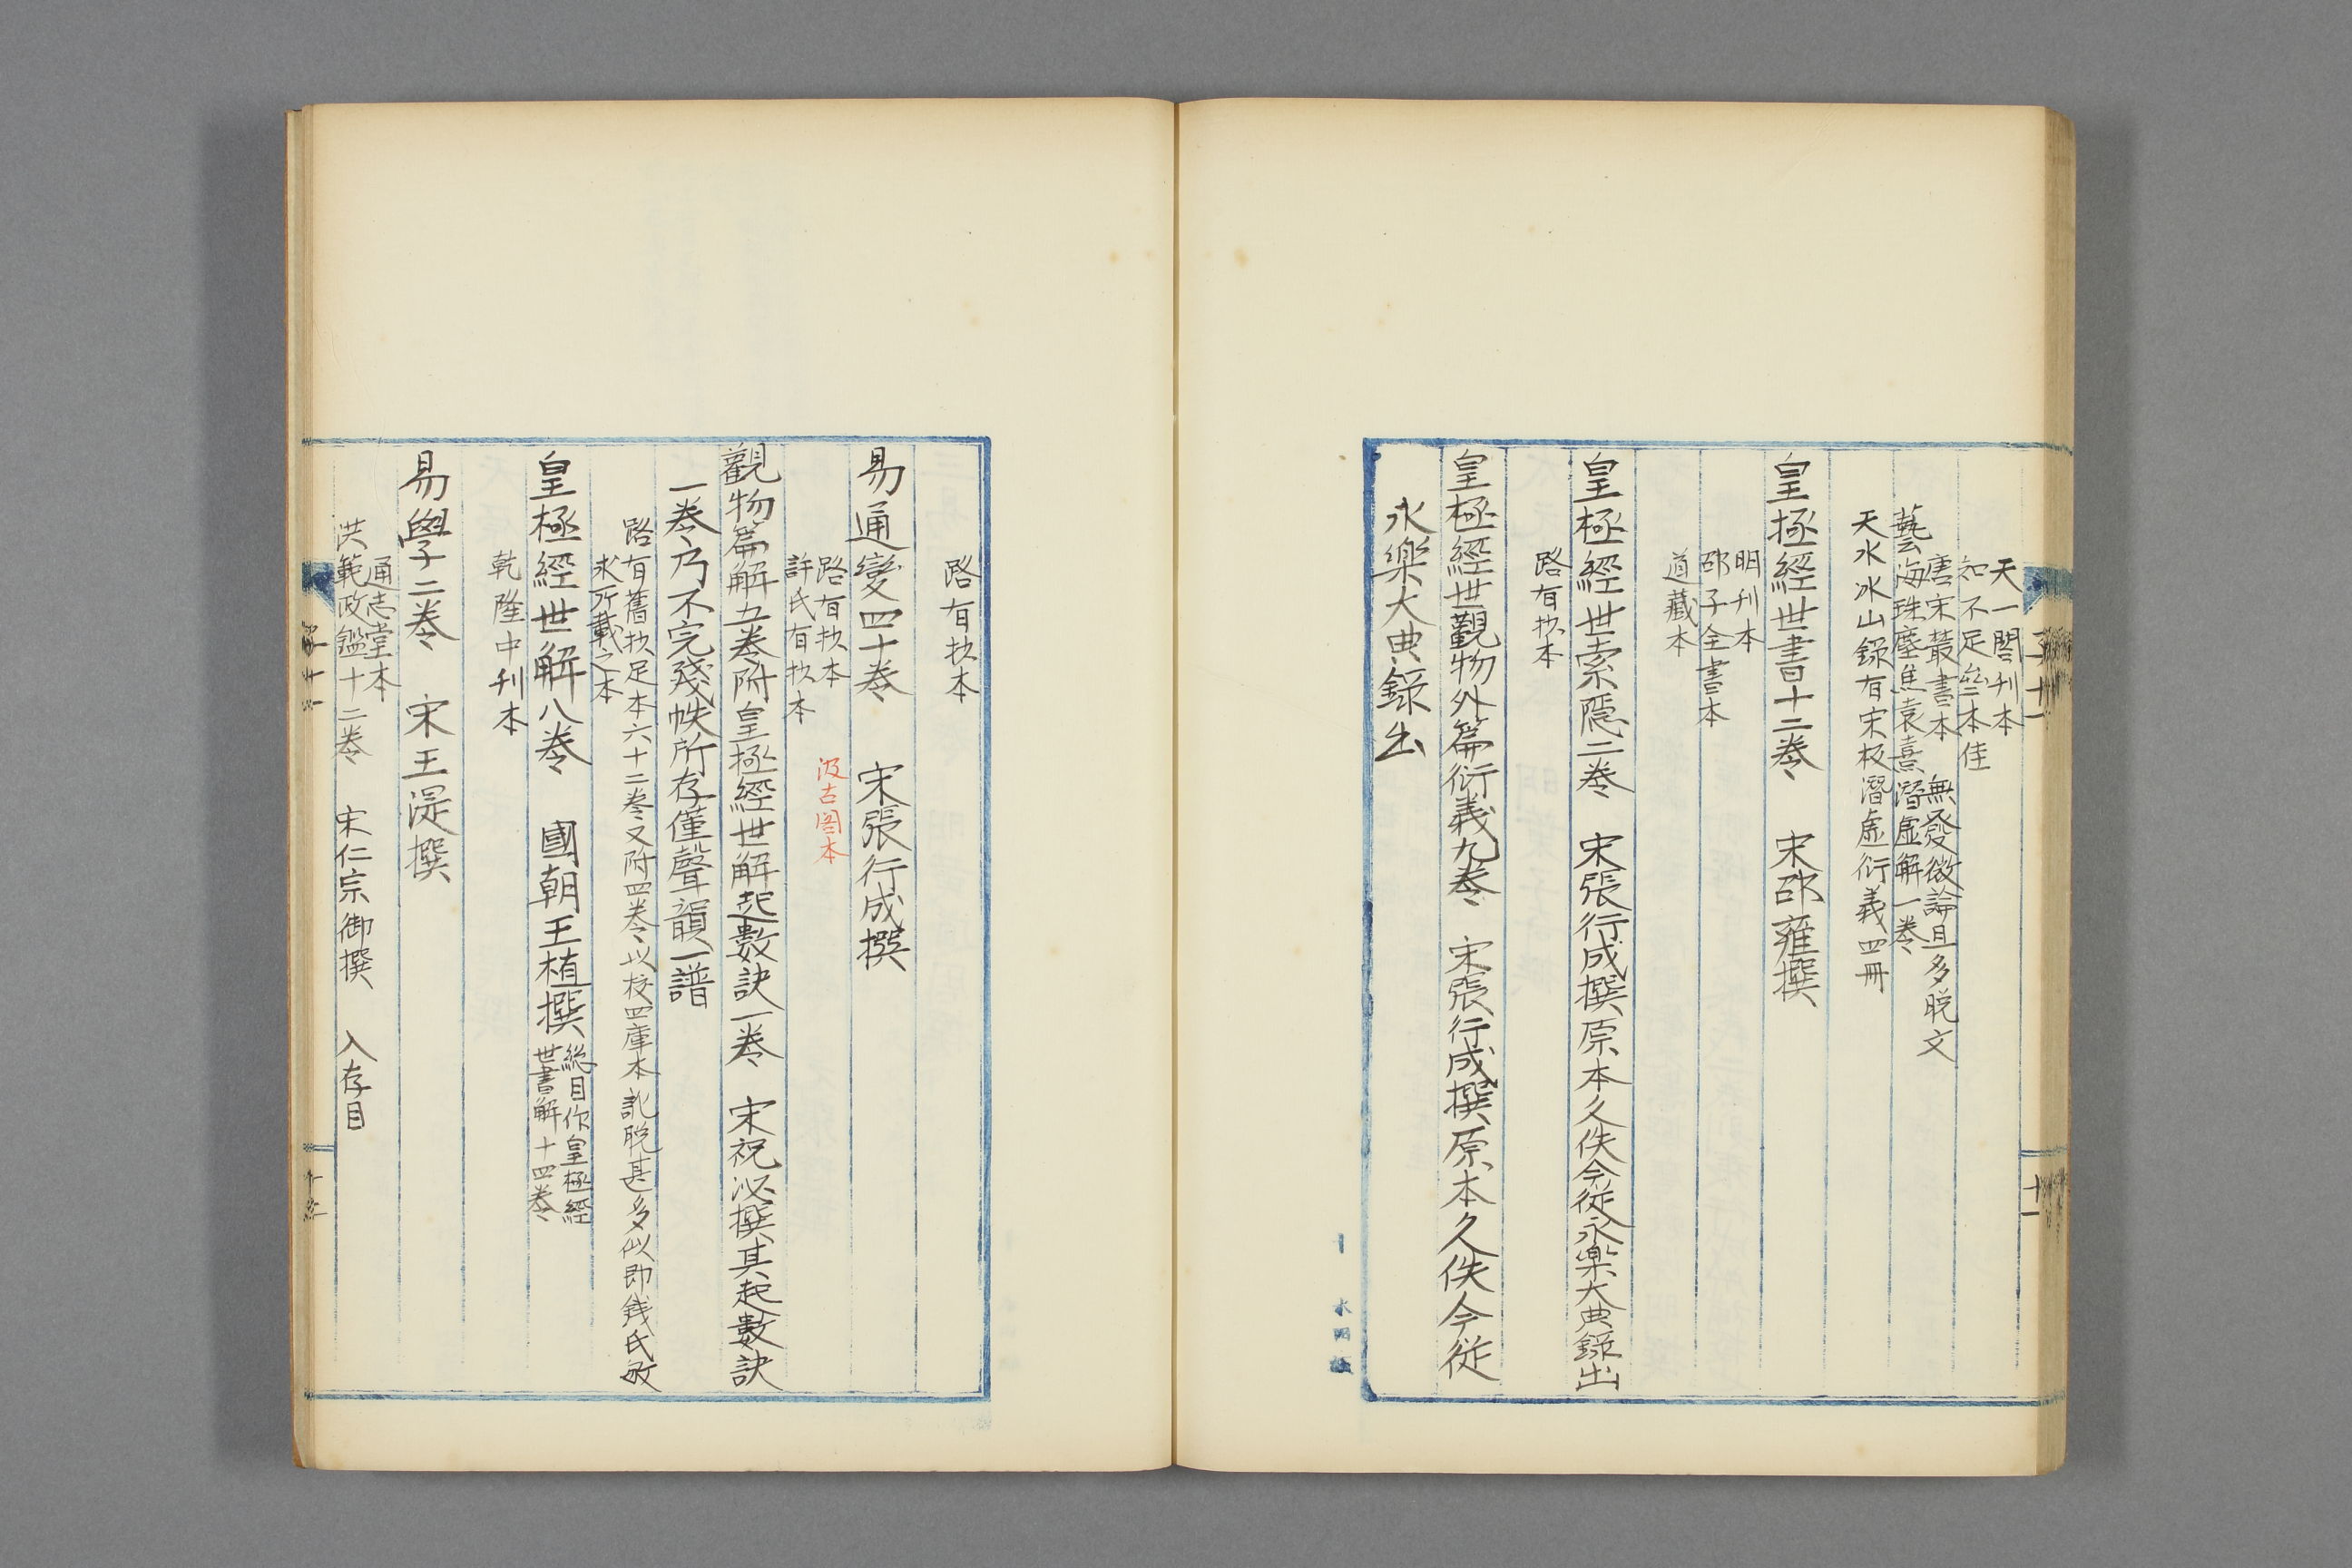 天一閣刊本
知不足叁本佳
唐宋叢書本　無發微論且多脱文
藝海珠塵焦袁熹潛虛解一卷
天水冰山錄有宋板潛虛衍義四冊
皇極經世書十二卷　宋邵雍撰
明刊本
邵子全書本
道藏本
皇極經世索隱二卷　宋張行成撰原本久佚今從永樂大典錄出
路有抄本
皇極經世觀物外篇衍義九卷　宋張行成撰原本久佚今從
永樂大典錄出
路有抄本
易通變四十卷　宋張行成撰
路有抄本　汲古閣本
許氏有抄本
觀物篇解五卷附皇極經世解起數訣一卷　宋祝泌撰其起數訣
一卷乃不完殘帙所存僅聲韻一譜
路有舊抄足本六十二卷又附四卷以校四庫本訛脱甚多似即錢氏敏
求所載之本
皇極經世解八卷　國朝王植撰
總目作皇極經
世書解十四卷
乾隆中刊本
易學二卷　宋王湜撰
通志堂本
洪範政鑑十二卷　宋仁宗御撰　入存目